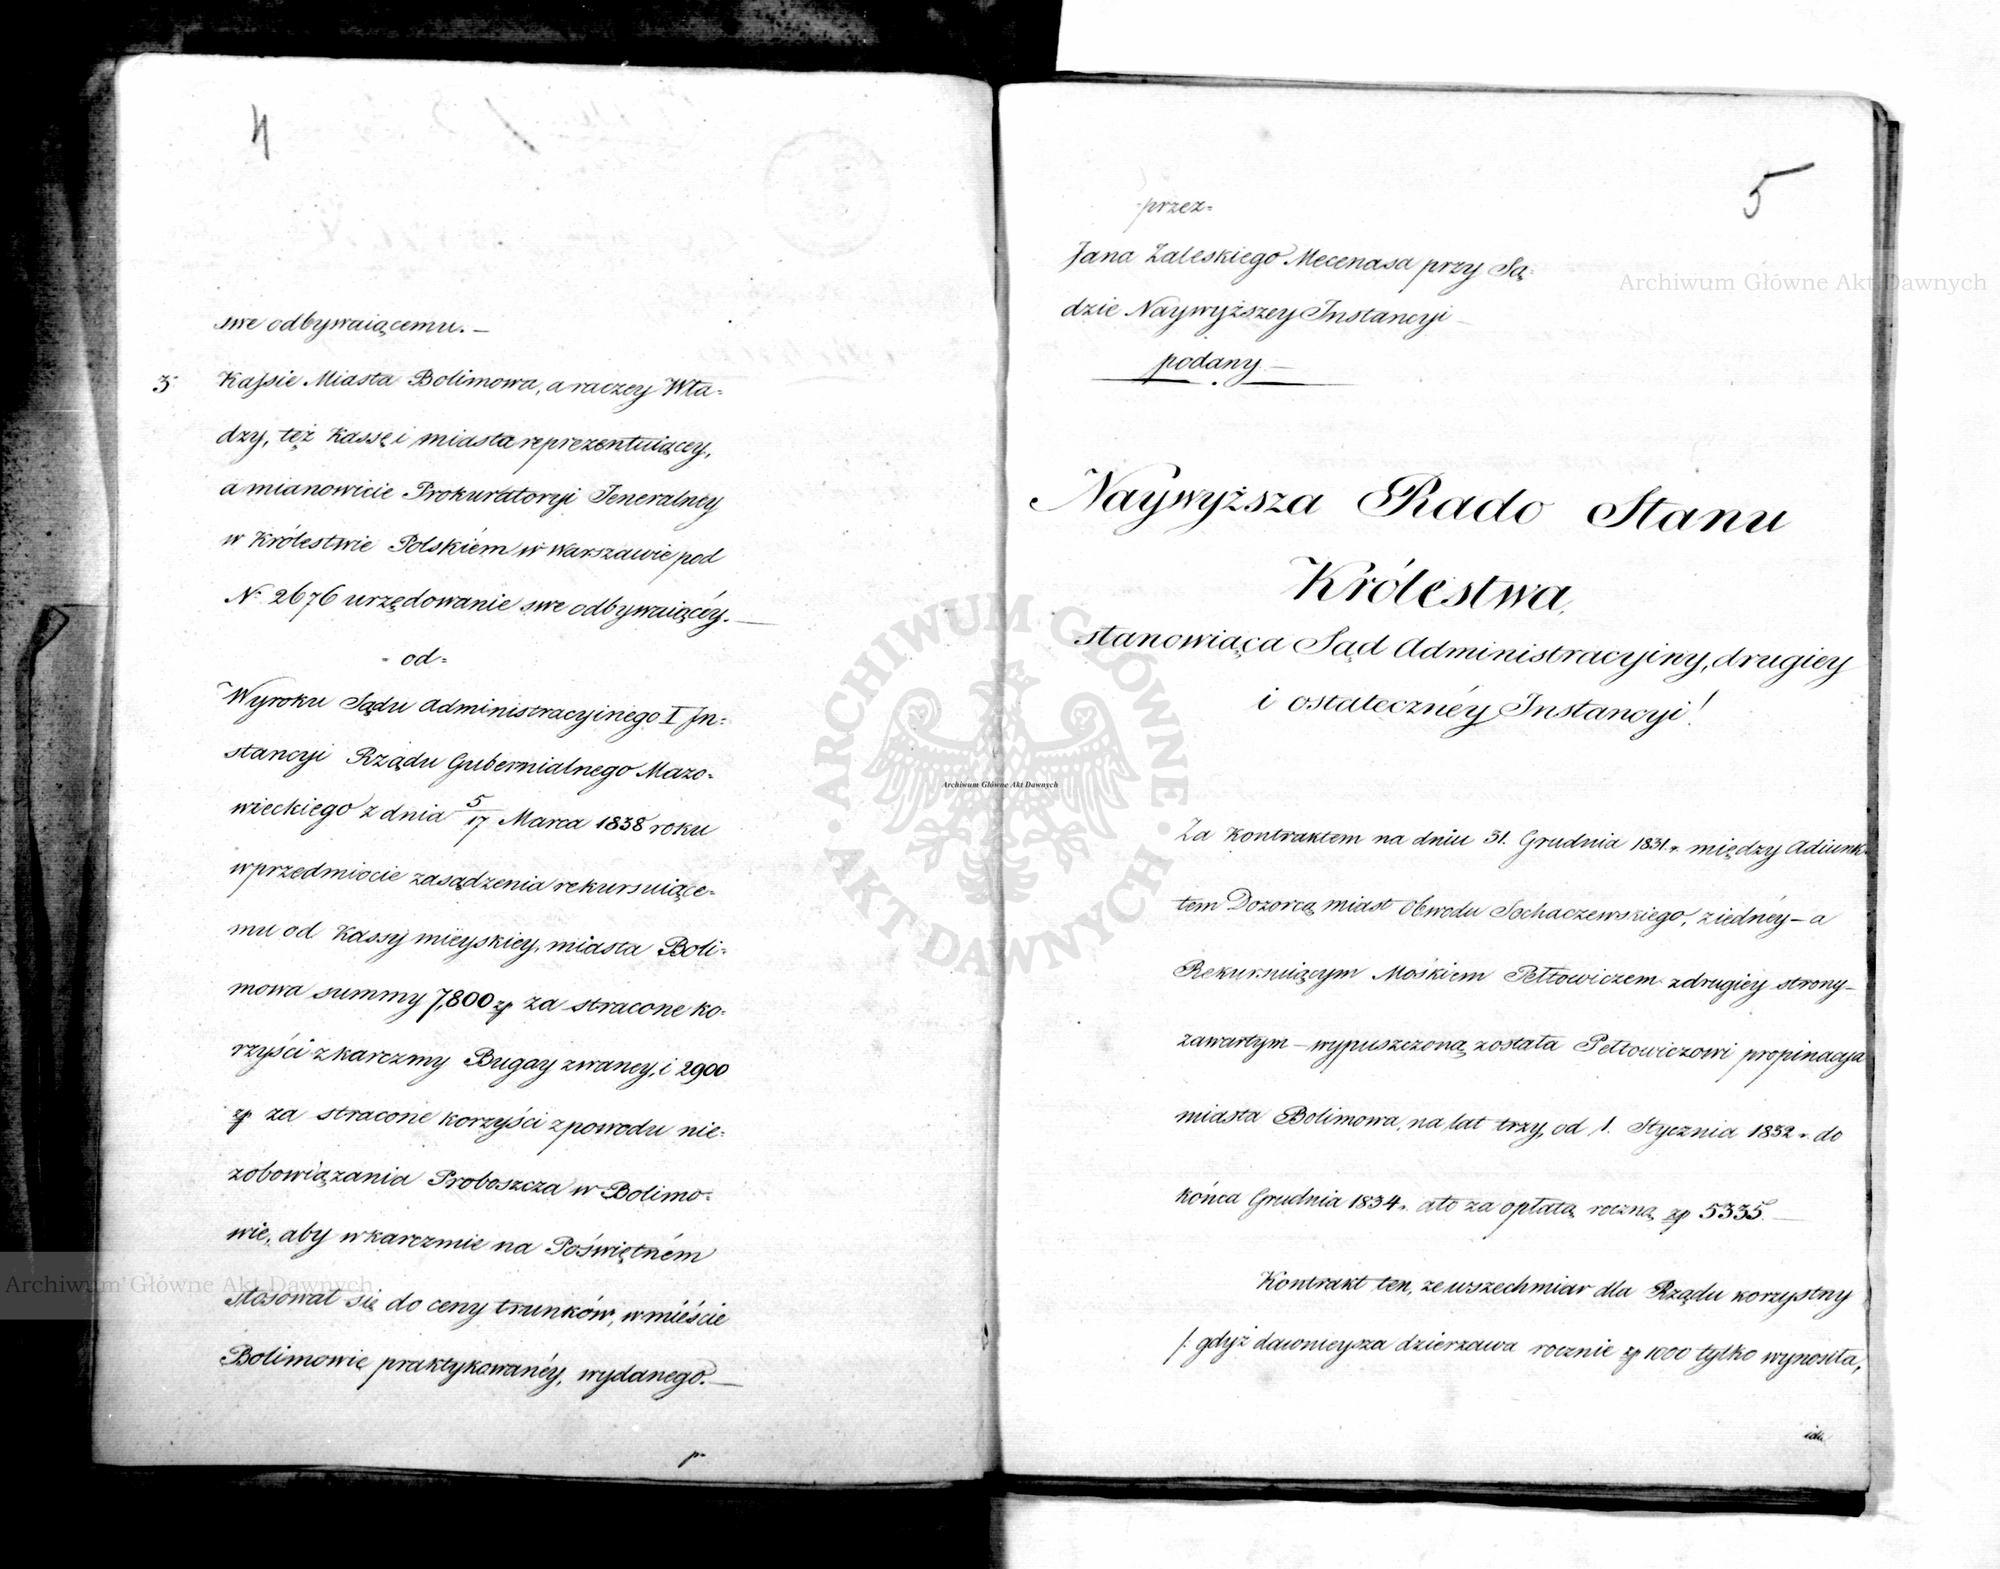 4
swe odbywaiącemu. —
3. Kassie Miasta Bolimowa, a raczey Wła-
dzy, też Kassę i miasta reprezentuiącey,
a mianowicie Prokuratoryi Jeneralney
w Królestwie Polskiém w Warszawie pod
N. 2676 urzędowanie swe odbywaiącéy. —
= od =
Wyroku Sądu Administracyinego I In-
stancyi Rządu Gubernialnego Mazo-
wieckiego z dnia 5/17 Marca 1838 roku
w przedmiocie zasądzenia rekursuiące-
mu od Kassy mieyskiey, miasta Boli-
mowa summy 7,800 zp za stracone ko-
rzyści z karczmy Bugay zwaney, i 2900
zp za stracone korzyści z powodu nie-
zobowiązania Proboszcza w Bolimo-
wie, aby w karczmie na Poświętném
stosował się do ceny trunków, w mieście
Bolimowie praktykowanéy, wydanego. —
p
5
= przez =
Jana Zaleskiego Mecenasa przy Są-
dzie Naywyższey Instancyi —
podany —
Naywyższa Rado Stanu
Królestwa,
stanowiąca Sąd Administracyiny, drugiey
i ostatecznéy Instancyi!
Za Kontraktem na dniu 31. Grudnia 1831. r. między Adiunk-
tem Dozorcą miast Obwodu Sochaczewskiego, z iednéy — a
Rekursuiącym Mośkiem Pełtowiczem z drugiey strony —
zawartym — wypuszczoną została Pełtowiczowi propinacya
miasta Bolimowa, na lat trzy, od 1. Stycznia 1832 r. do
końca Grudnia 1834 r. a to za opłatą roczną zp 5335. —
Kontrakt ten, ze wszechmiar dla Rządu korzystny
/: gdyż dawnieysza dzierzawa rocznie zp 1000 tylko wynosiła,
Archiwum Główne Akt Dawnych
Archiwum Główne Akt Dawnych
Archiwum Główne Akt Dawnych
ARCHIWUM GŁÓWNE AKT DAWNYCH